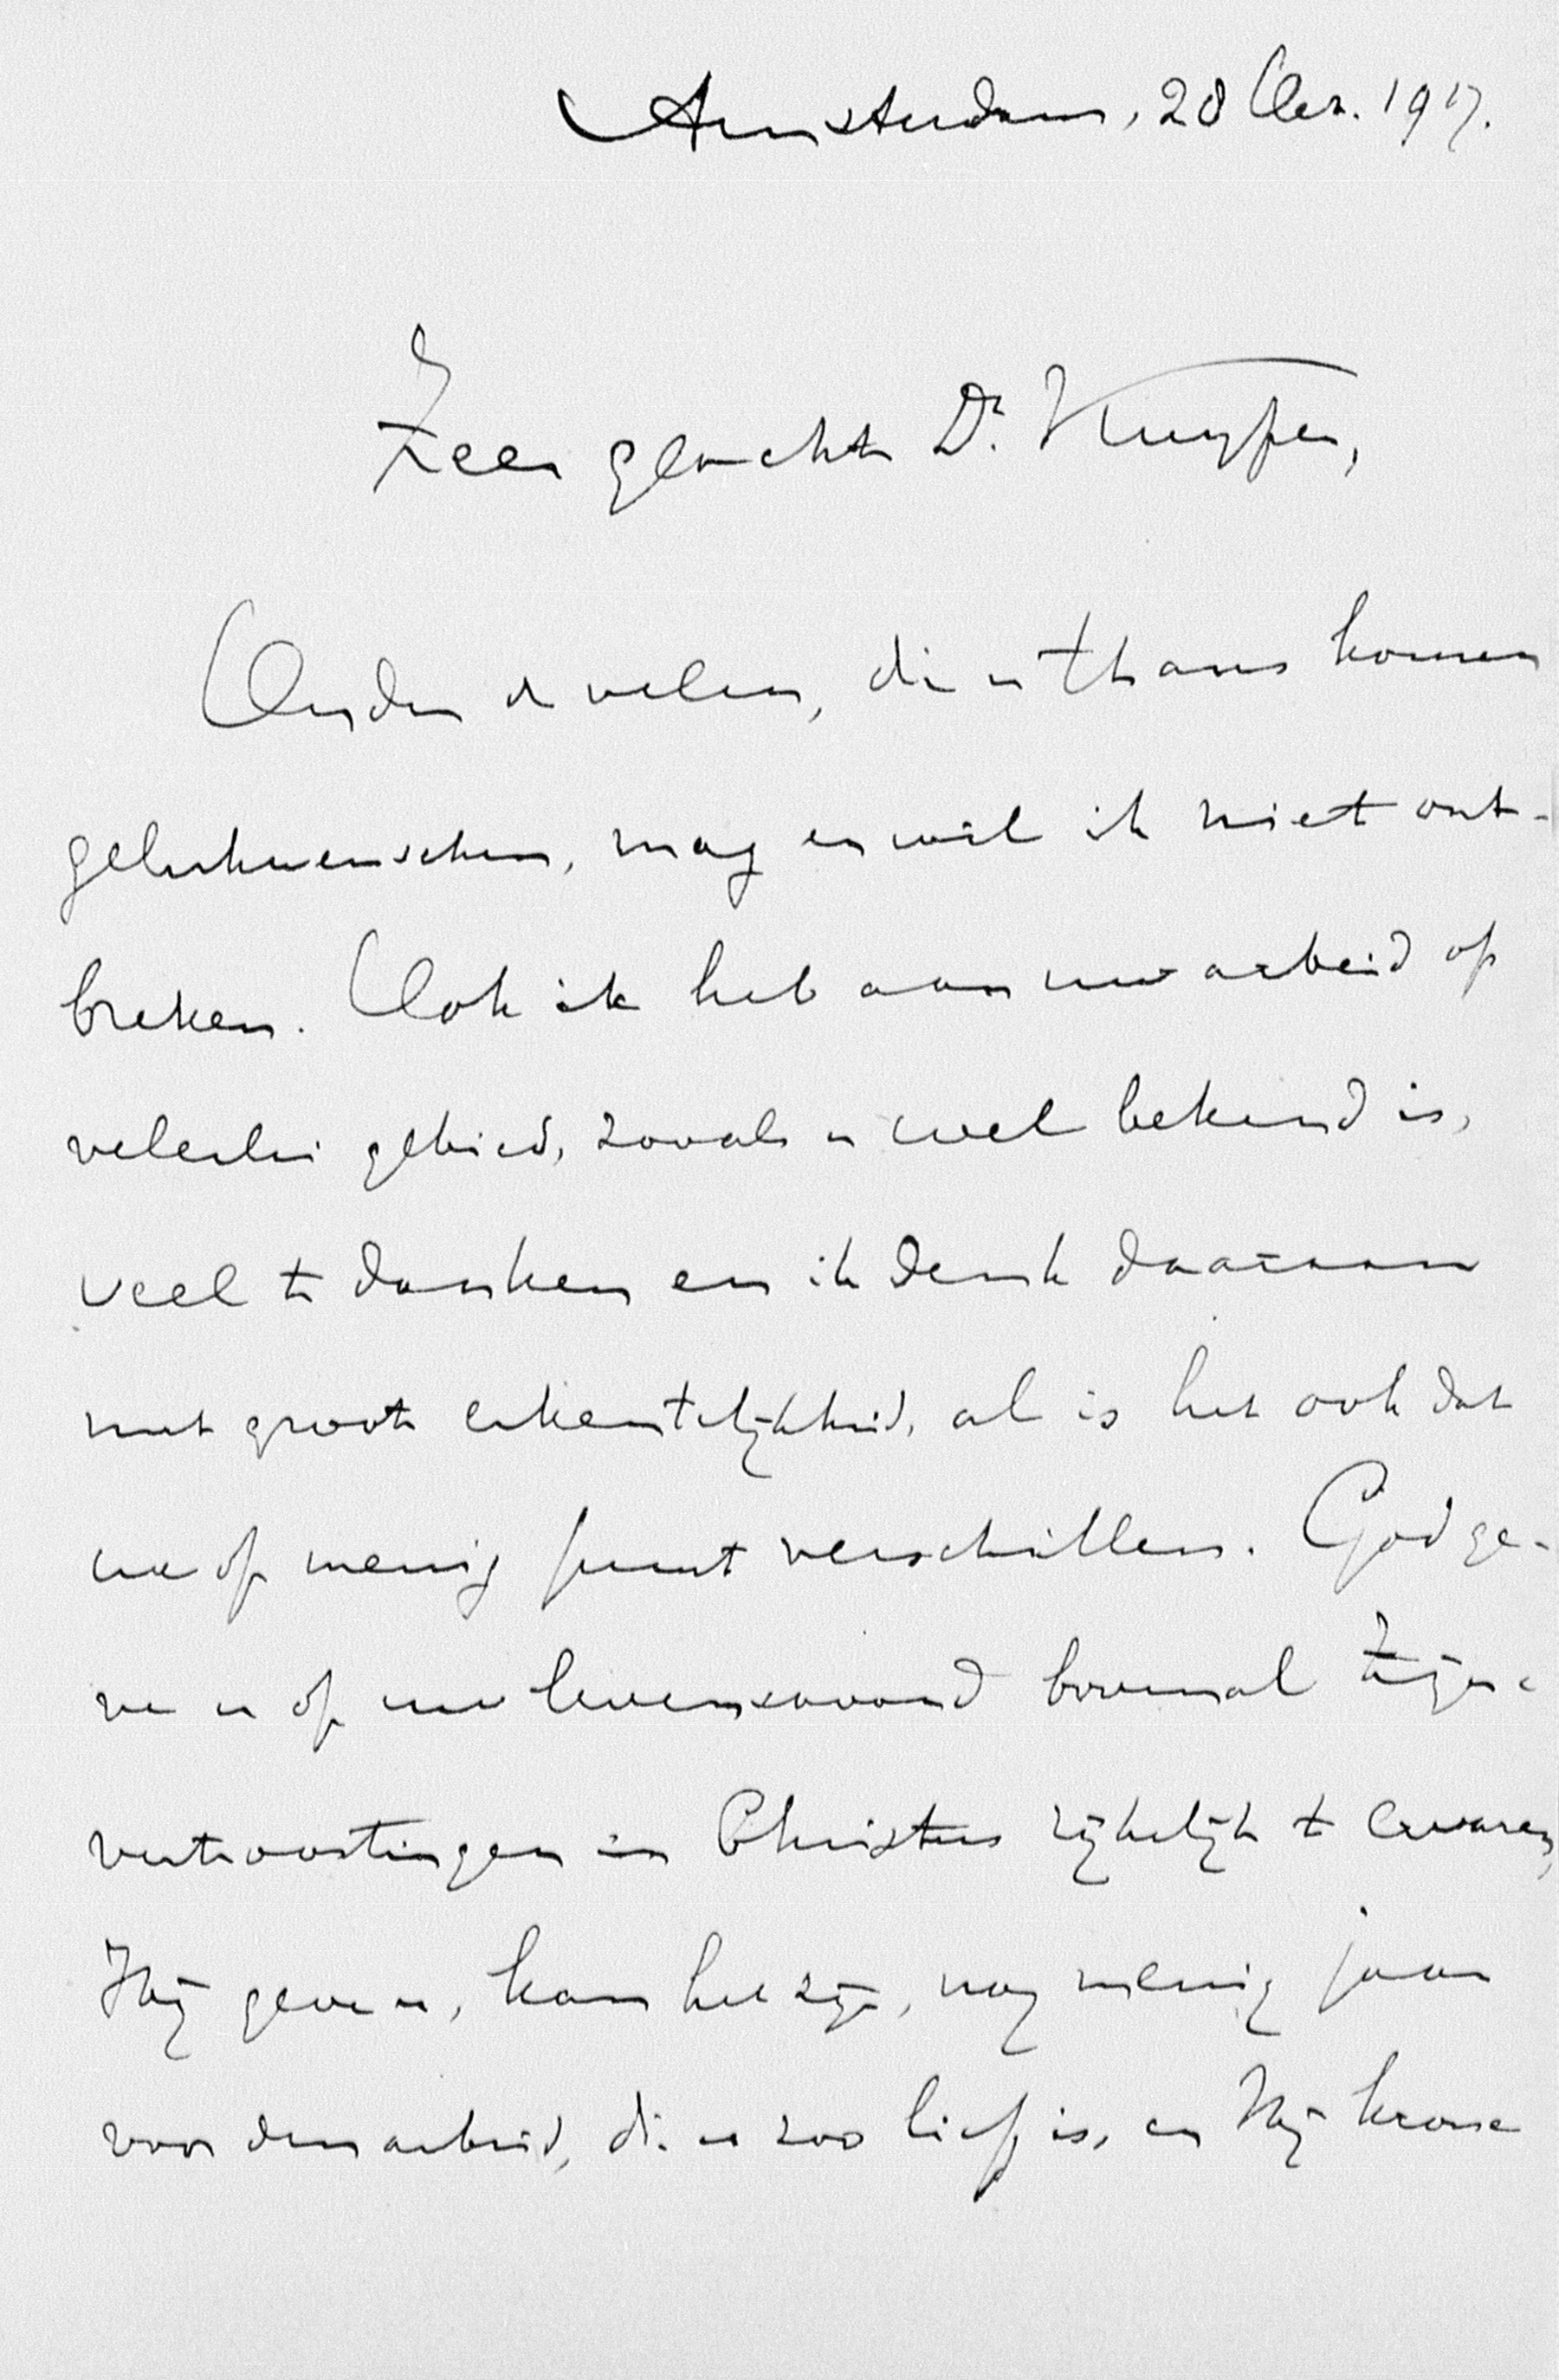 Amsterdam, 28 Oct. 1917.
Zeer geachte Dr. Kuyper,
Onder de velen, die u thans komen
gelukwenschen, mag en wil ik niet ont-
breken. Ook ik heb aan uw arbeid op
velerlei gebied, zooals u wel bekend is,
veel te danken en ik denk daaraan
met groote erkentelijkheid, al is het ook dat
we op menig punt verschillen. God ge-
ve u op uw levensavond bovenal Zijne
vertroostingen in Christus rijkelijk te ervaren,
Hij geve u, kan het zijn, nog menig jaar
voor den arbeid, die u zoo lief is, en Hij krone